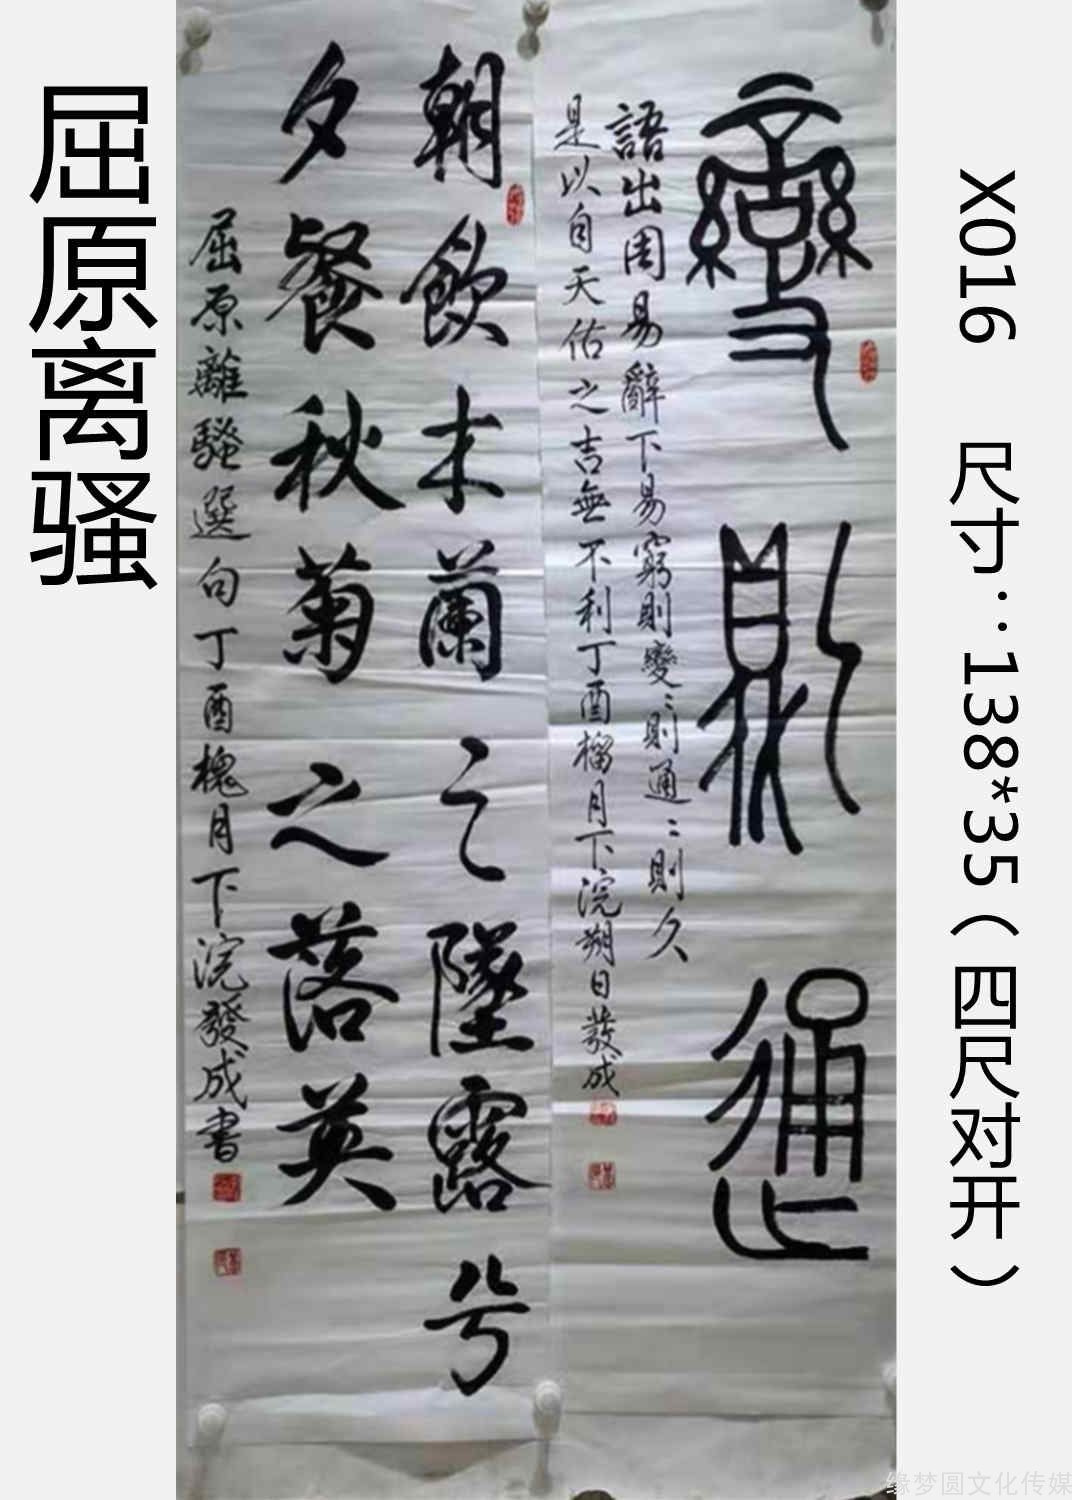 屈原离骚
X016 尺寸：138*35（四尺对开）
變則通
語出周易辭下易窮則變〻則通〻則久
是以自天佑之吉無不利丁酉榴月下浣朔日發成
朝飲木蘭之墜露兮
夕餐秋菊之落英
屈原離騷選句丁酉槐月下浣發成書
缘梦圆文化传媒